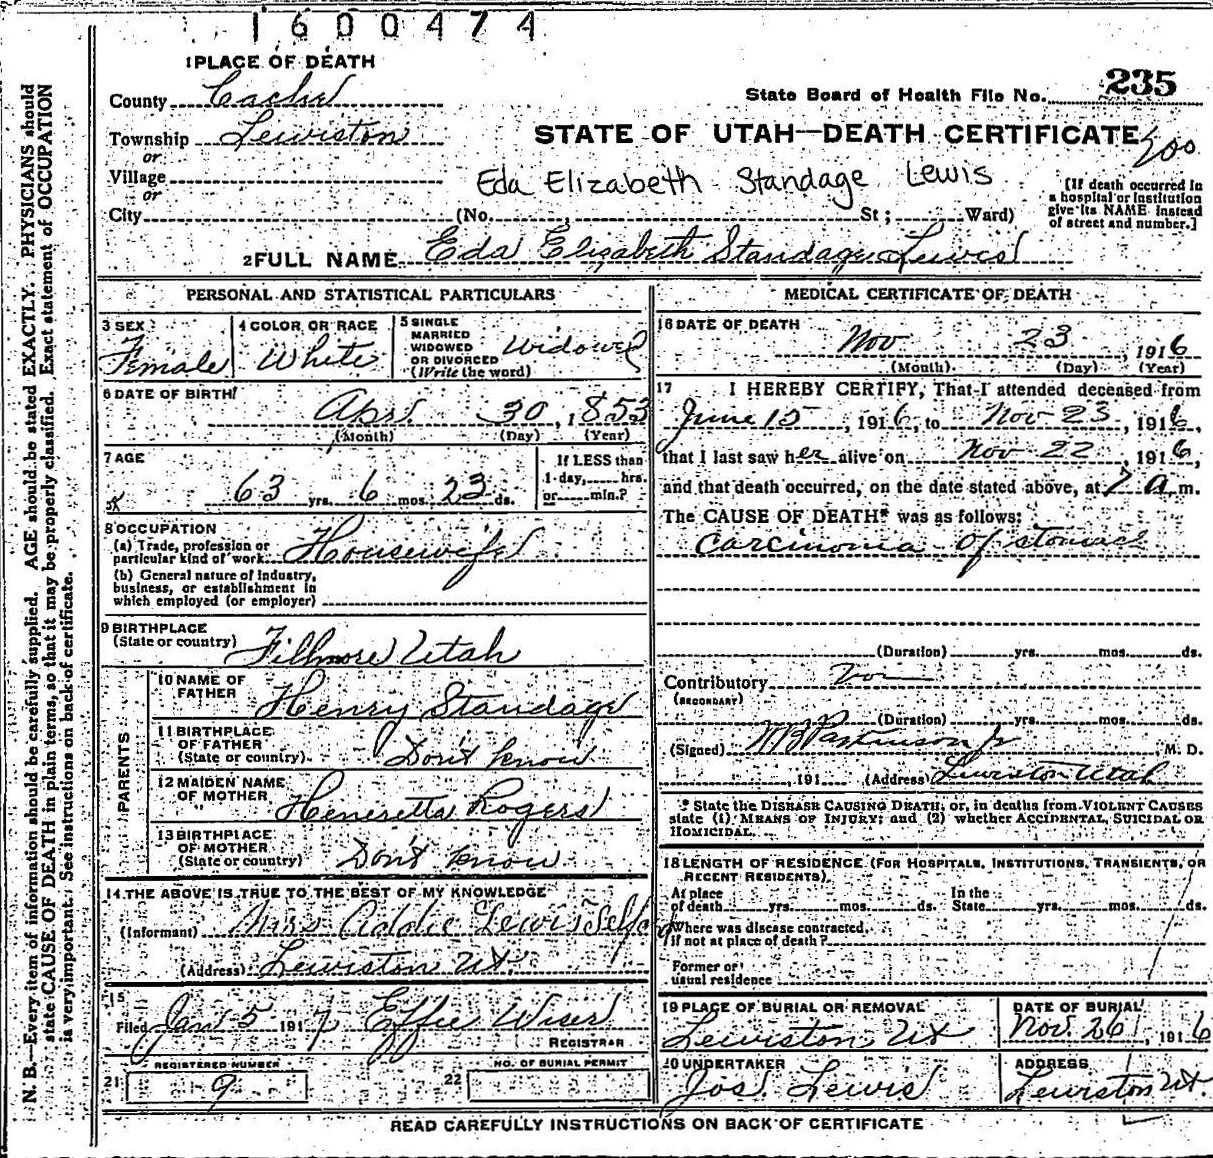 1600474
1 PLACE OF DEATH
County Cache
State Board of Health File No. 235
Township Lewiston
or
STATE OF UTAH—DEATH CERTIFICATE
200
Village
or
Eda Elizabeth Standage Lewis
(If death occurred in a hospital or institution give its NAME instead of street and number.]
City (No. , St ; Ward)
2 FULL NAME Eda Elizabeth Standage Lewis
PERSONAL AND STATISTICAL PARTICULARS
3 SEX
Female
4 COLOR OR RACE
White
5 SINGLE
MARRIED
WIDOWED
OR DIVORCED
(Write the word)
Widowed
6 DATE OF BIRTH
Apr. 30, 1853
(Month) (Day) (Year)
7 AGE
63 yrs. 6 mos. 23 ds.
If LESS than
1 day, hrs.
or min.?
8 OCCUPATION
(a) Trade, profession or
particular kind of work Housewife
(b) General nature of industry,
business, or establishment in
which employed (or employer)
9 BIRTHPLACE
(State or country) Fillmore Utah
PARENTS
10 NAME OF
FATHER Henry Standage
11 BIRTHPLACE
OF FATHER
(State or country) Don't know
12 MAIDEN NAME
OF MOTHER Heneretta Rogers
13 BIRTHPLACE
OF MOTHER
(State or country) Don't know
14 THE ABOVE IS TRUE TO THE BEST OF MY KNOWLEDGE
(Informant) Mrs Addie Lewis Selford
(Address) Lewiston Ut.
15
Filed Jan 5 1917 Effie Wiser
REGISTRAR
REGISTERED NUMBER
21 9
NO. OF BURIAL PERMIT
22
MEDICAL CERTIFICATE OF DEATH
16 DATE OF DEATH
Nov 23, 1916
(Month) (Day) (Year)
17 I HEREBY CERTIFY, That I attended deceased from
June 15, 1916, to Nov 23, 1916,
that I last saw her alive on Nov 22, 1916,
and that death occurred, on the date stated above, at 7 a m.
The CAUSE OF DEATH* was as follows:
Carcinoma of stomach
(Duration) yrs. mos. ds.
Contributory
(SECONDARY)
(Duration) yrs. mos. ds.
(Signed) WB Parkinson Jr M. D.
, 191 (Address) Lewiston Utah
* State the DISEASE CAUSING DEATH, or, in deaths from VIOLENT CAUSES
state (1) MEANS OF INJURY; and (2) whether ACCIDENTAL, SUICIDAL OR
HOMICIDAL.
18 LENGTH OF RESIDENCE (FOR HOSPITALS, INSTITUTIONS, TRANSIENTS, OR
RECENT RESIDENTS)
At place
of death yrs. mos. ds.
In the
State yrs. mos. ds.
Where was disease contracted,
if not at place of death?
Former or
usual residence
19 PLACE OF BURIAL OR REMOVAL
Lewiston Ut
DATE OF BURIAL
Nov. 26, 1916
20 UNDERTAKER
Jos. Lewis
ADDRESS
Lewiston Ut.
READ CAREFULLY INSTRUCTIONS ON BACK OF CERTIFICATE
N. B.—Every item of information should be carefully supplied. AGE should be stated EXACTLY. PHYSICIANS should
state CAUSE OF DEATH in plain terms, so that it may be properly classified. Exact statement of OCCUPATION
is very important. See instructions on back of certificate.